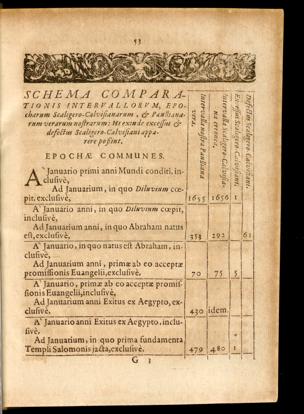 53
SCHEMA COMPARA-
TIONIS INTERVALLORVM, EPO-
charum Scaligero-Calvisianarum, & Paulliana-
rum verarum nostrarum: Ut exinde excessus &
defectus Scaligero-Calvisiani appa-
rere possint.
EPOCHÆ COMMUNES.
Intervalla nostra Paulliana vera.
Intervalla Scaligero-Calvisiana erronea.
Excessus Scaligero-Calvisiani.
Defectus Scaligero-Calvisiani.
A' Januario primi anni Mundi conditi, in-
clusivè,
Ad Januarium, in quo Diluvium cœ-
pit, exclusivè, 1655 1656 1
A' Januario anni, in quo Diluvium cœpit,
inclusivè,
Ad Januarium anni, in quo Abraham natus
est, exclusivè, 353 292 61
A' Januario, in quo natus est Abraham, in-
clusivè,
Ad Januarium anni, primæ ab eo acceptæ
promissionis Euangelii, exclusivè, 70 75 5
A' Januario, primæ ab eo acceptæ promis-
sionis Euangelii, inclusivè,
Ad Januarium anni Exitus ex Aegypto, ex-
clusivè, 430 idem.
A' Januario anni Exitus ex Aegypto, inclu-
sivè,
Ad Januarium, in quo prima fundamenta
Templi Salomonis jacta, exclusivè, 479 480 1
G 3